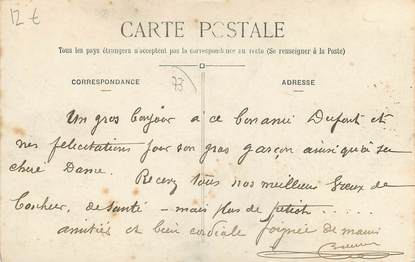 12 €
CARTE POSTALE
Tous les pays étrangers n'acceptent pas la correspondance au recto (Se renseigner à la Poste)
CORRESPONDANCE
73
ADRESSE
Un gros bonjour à ce bon ami Dufour et
nos félicitations pour son gros garçon ainsi qu'à sa
chère Dame. Recevez tous nos meilleurs Voeux de
Bonheur, de santé - mais plus de petits .....
amitiés et bien cordiale poignée de main